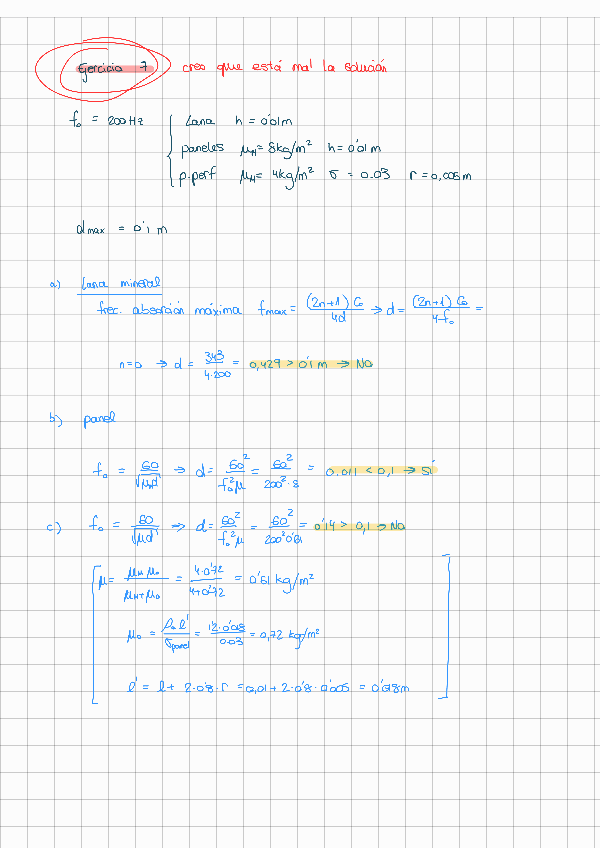 Ejercicio 7 creo que está mal la solución
f₀ = 200Hz { Lana h = 0'01m
paneles μ_H = 8kg/m² h = 0'01m
p.perf μ_H = 4kg/m² σ = 0.03 r = 0,005m
d_max = 0'1 m
a) Lana mineral
frec. absorción máxima f_max = (2n+1) C₀ / 4d → d = (2n+1) C₀ / 4·f₀ =
n=0 → d = 343 / 4·200 = 0,429 > 0'1 m → No
b) panel
f₀ = 60 / √(μ_H d) → d = 60² / f₀² μ = 60² / 200²·8 = 0.011 < 0,1 → Sí
c) f₀ = 60 / √(μd) → d = 60² / f₀² μ = 60² / 200² 0'61 = 0'14 > 0,1 → No
[ μ = μ_H μ₀ / μ_H + μ₀ = 4·0'72 / 4+0'72 = 0'61 kg/m²
μ₀ = ρ₀ l' / σ_panel = 1'2·0'018 / 0.03 = 0,72 kg/m²
l' = l + 2·0'8·r = 0,01 + 2·0'8·0'005 = 0'018m ]